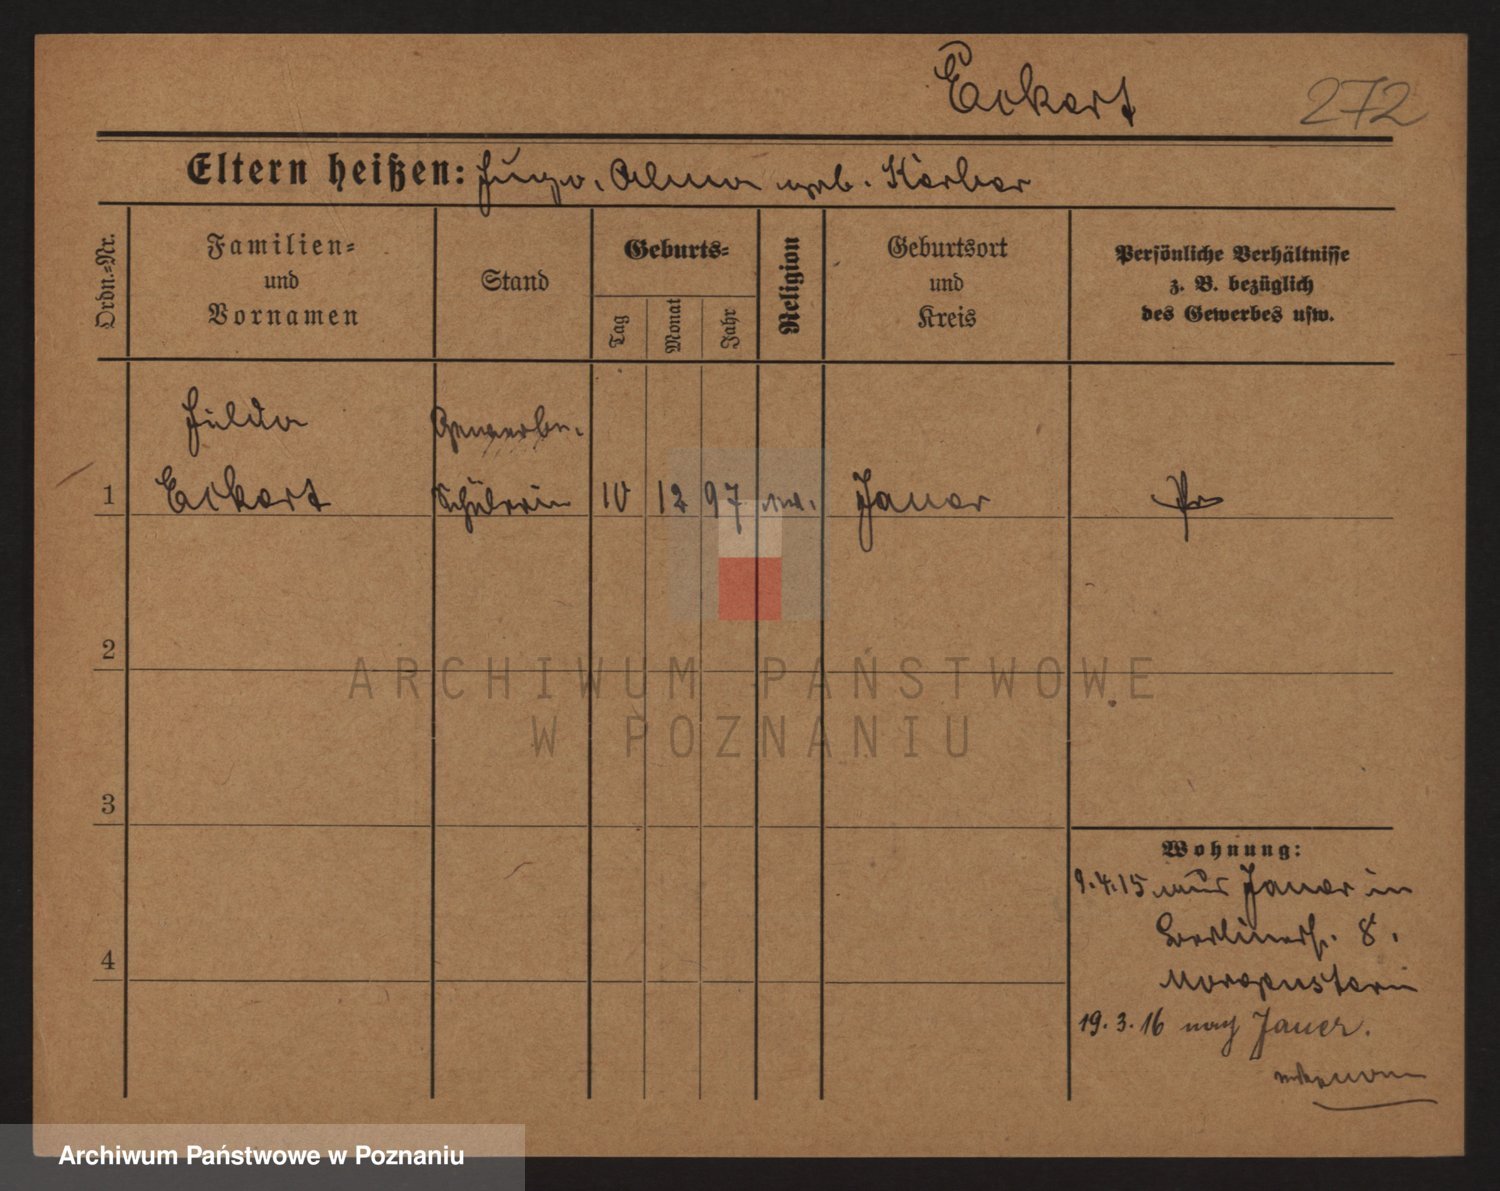 Eckert
272
Eltern heißen: Hugo u. Alma geb. Körber
Ordn.-Nr.
Familien-
und
Vornamen
Stand
Geburts-
Tag
Monat
Jahr
Religion
Geburtsort
und
Kreis
Persönliche Verhältnisse
z. B. bezüglich
des Gewerbes usw.
Hilda
Gewerbe-
1 Eckert Schülerin 10 12 97 ev. Jauer Pr
2
3
4
Wohnung:
9.4.15 aus Jauer in
Berlinerstr. 8.
19.3.16 nach Jauer.
ARCHIWUM PAŃSTWOWE
W POZNANIU
Archiwum Państwowe w Poznaniu